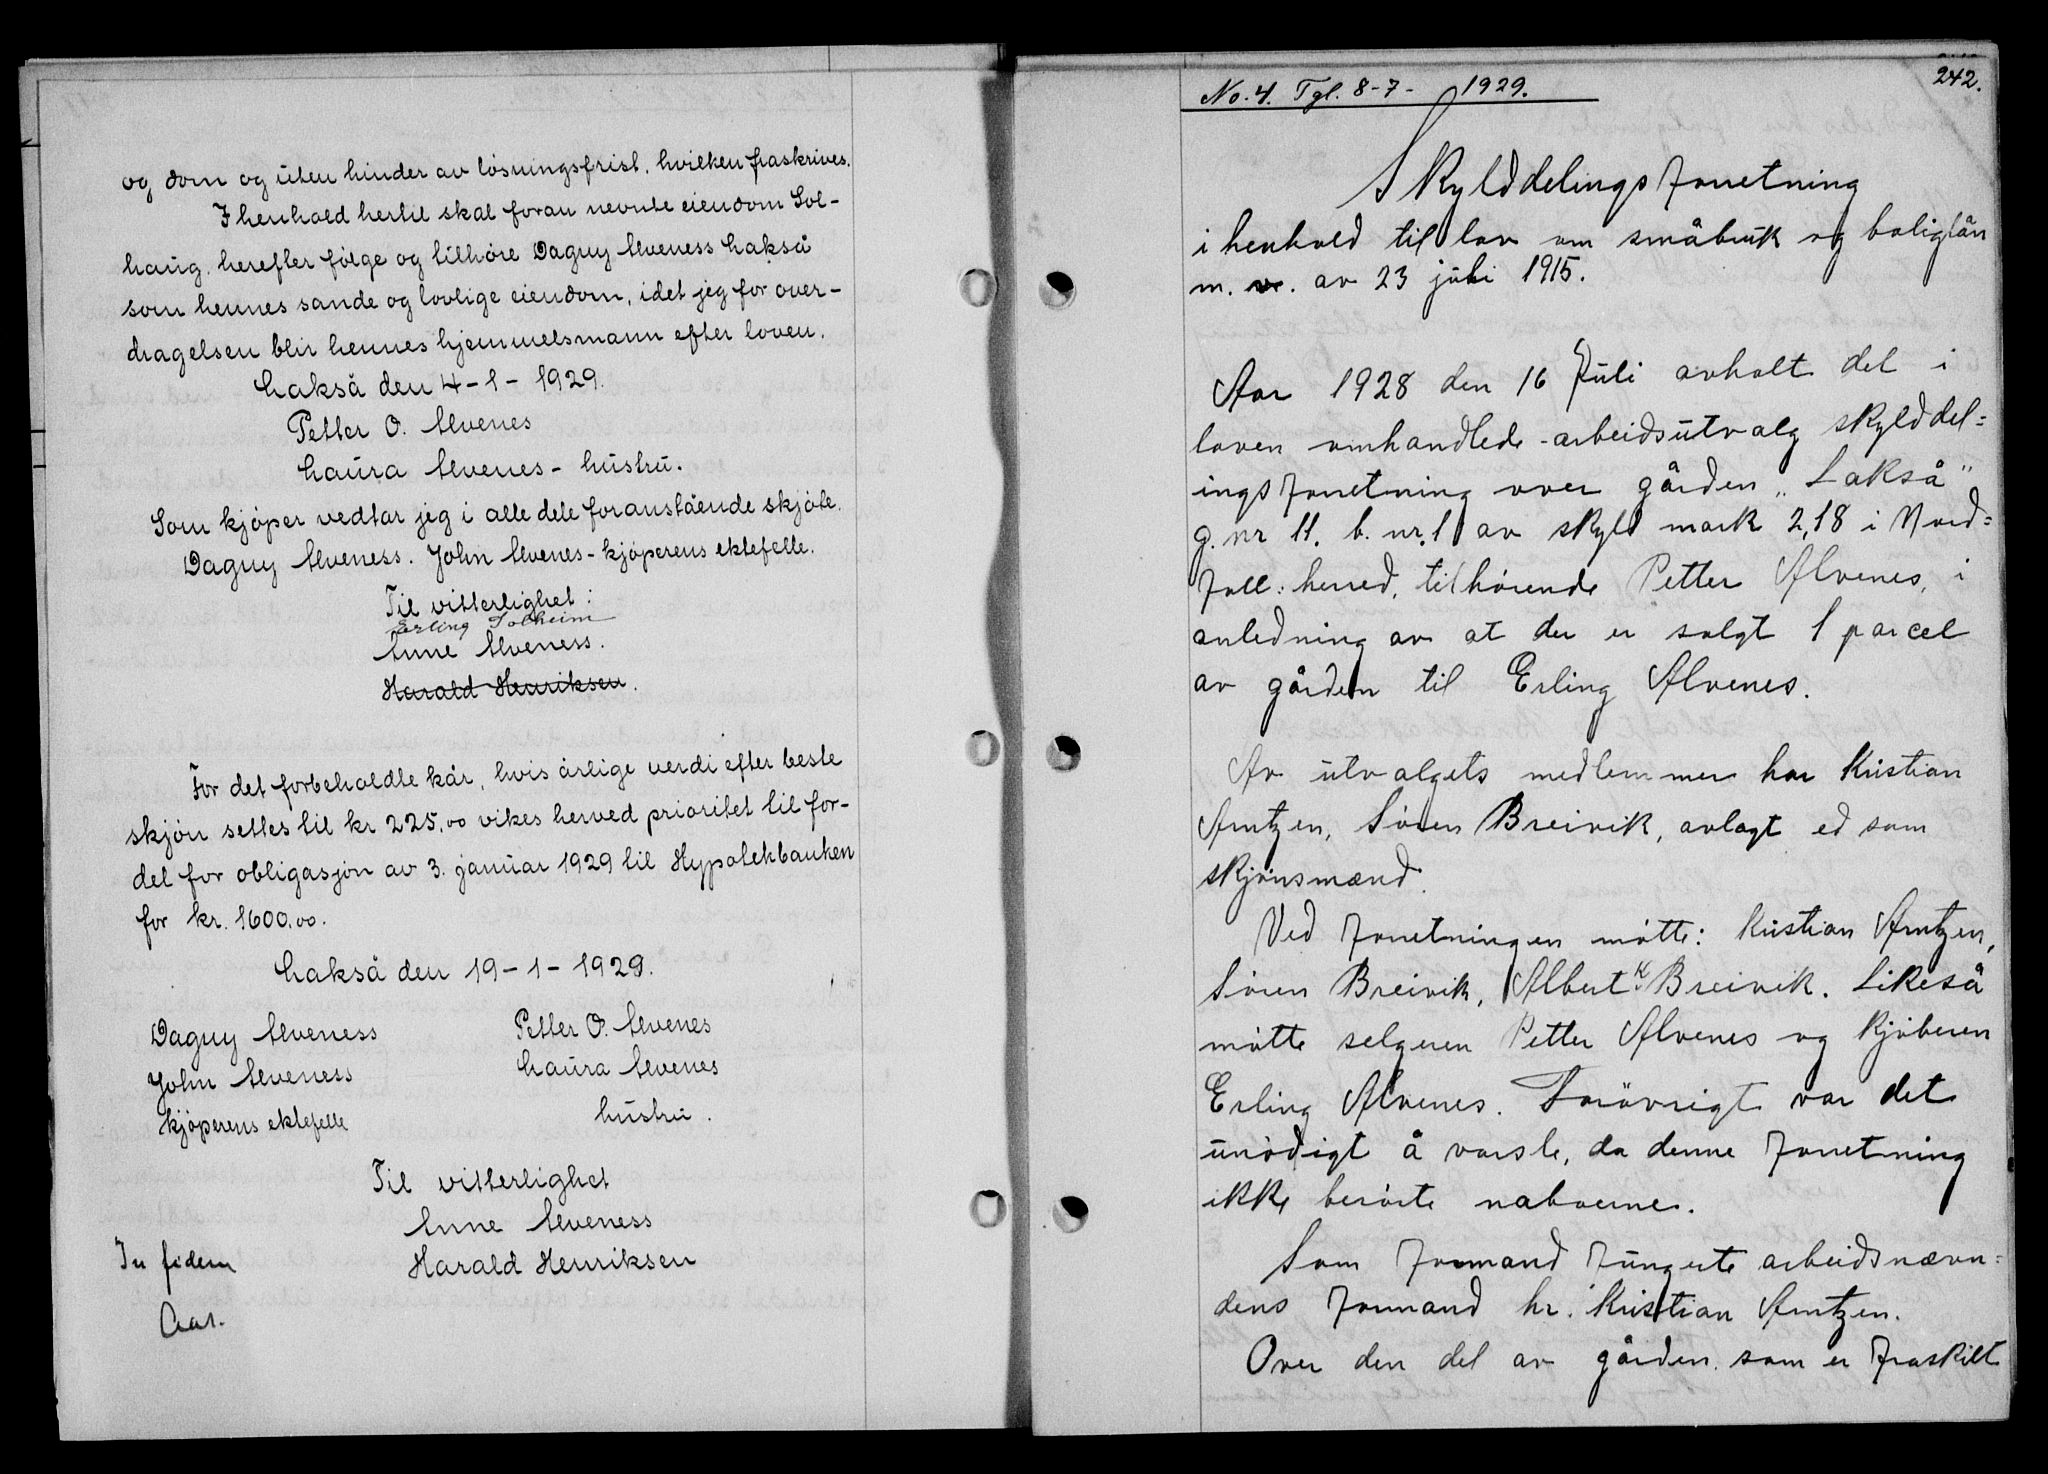 og dom og uten hinder av løsningsfrist, hvilken fraskrives.
I henhold hertil skal foran nevnte eiendom Sol-
haug, herefter følge og tilhøre Dagny Alveness Lakså
som hennes sande og lovlige eiendom, idet jeg for over-
dragelsen blir hennes hjemmelsmann efter loven.
Lakså den 4-1-1929.
Petter O. Alvenes
Laura Alvenes - hustru.
Som kjøper vedtar jeg i alle dele foranstående skjøte.
Dagny Alveness. John Alvenes - kjøperens ektefelle.
Til vitterlighet:
Erling Solheim
Anne Alveness.
Harald Henriksen.
For det forbeholdte kår, hvis årlige verdi efter beste
skjøn settes til kr 225,00 vikes herved prioritet til for-
del for obligasjon av 3. januar 1929 til Hypotekbanken
for kr. 1600,00.
Lakså den 19-1-1929.
Dagny Alveness Petter O. Alvenes
John Alveness Laura Alvenes
kjøperens ektefelle hustru.
Til vitterlighet
Anne Alveness
In fidem Harald Henriksen
No. 4. Tgl. 8-7- 1929.
242.
Skylddelingsforretning
i henhold til lov om småbruk og boliglån
m. v. av 23 juli 1915.
Aar 1928 den 16 Juli avholt det i
loven omhandlede arbeidsutvalg skylddel=
ingsforretning over gården "Lakså"
g. nr 11. b. nr. 1 av skyld mark 2,18 i Nord=
foll. herred, tilhørende Petter Alvenes, i
anledning av at der er solgt 1 parcel
av gården til Erling Alvenes.
Av utvalgets medlemmer har Kristian
Arntzen, Sören Breivik, avlagt ed som
skjönsmænd.
Ved forretningen mötte: Kristian Arntzen,
Sören Breivik, Albert K Breivik. Likeså
mötte selgeren Petter Alvenes og kjöberen
Erling Alvenes. Forövrigt var det
unödigt å varsle, da denne forretning
ikke berörte naboerne.
Som formand fungerte arbeidsnævn=
dens formand hr. Kristian Arntzen.
Over den del av gården som er fraskilt